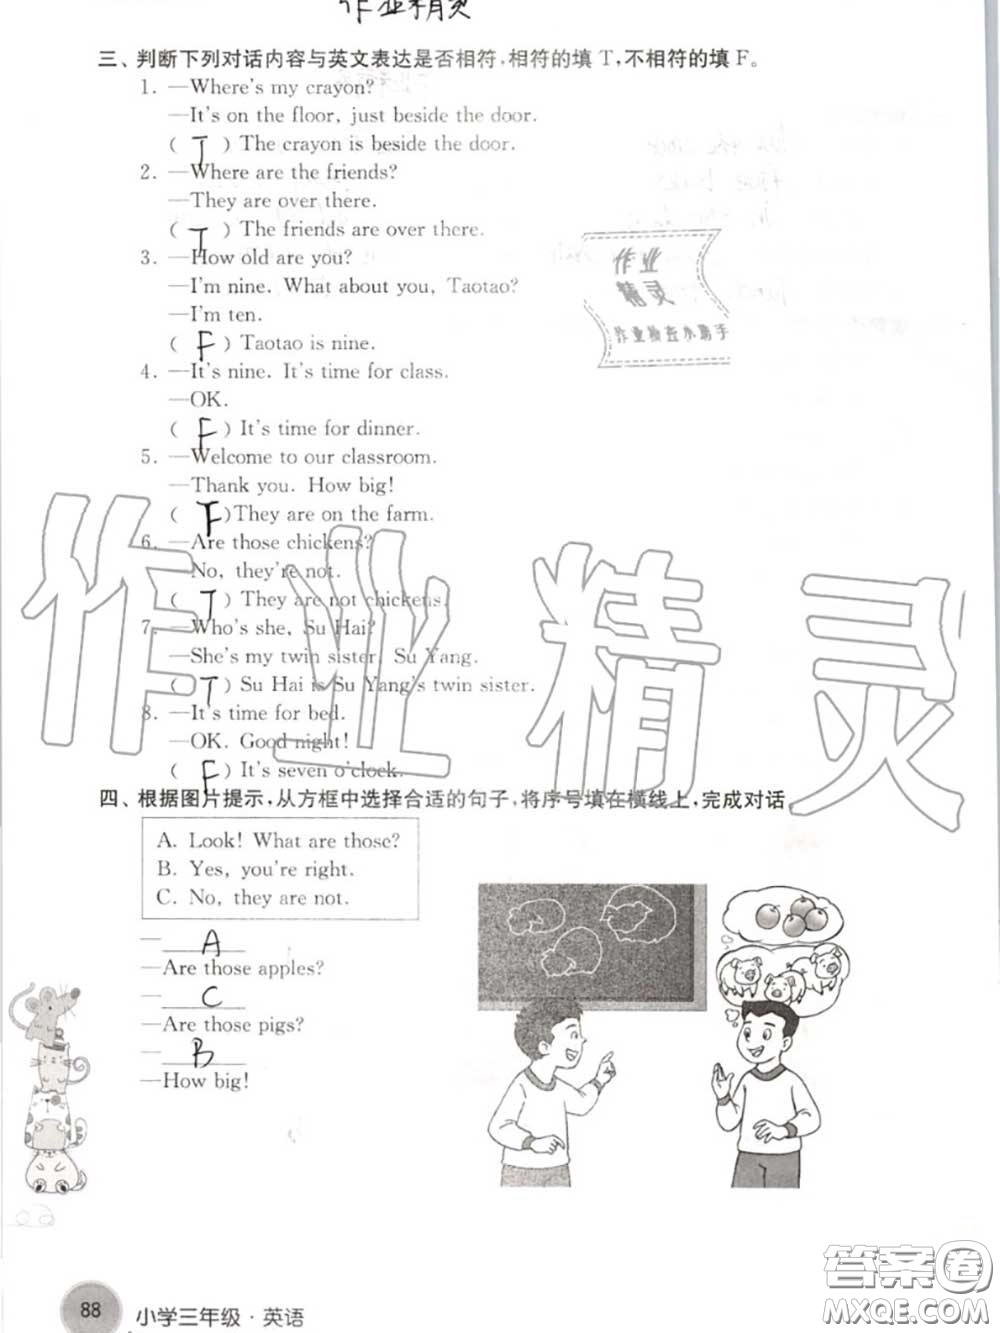 作业精灵
三、判断下列对话内容与英文表达是否相符,相符的填 T,不相符的填 F。
1. —Where's my crayon?
—It's on the floor, just beside the door.
( T ) The crayon is beside the door.
2. —Where are the friends?
—They are over there.
( T ) The friends are over there.
3. —How old are you?
—I'm nine. What about you, Taotao?
—I'm ten.
( F ) Taotao is nine.
4. —It's nine. It's time for class.
—OK.
( F ) It's time for dinner.
5. —Welcome to our classroom.
—Thank you. How big!
( F )They are on the farm.
6. —Are those chickens?
—No, they're not.
( T ) They are not chickens.
7. —Who's she, Su Hai?
—She's my twin sister, Su Yang.
( T ) Su Hai is Su Yang's twin sister.
8. —It's time for bed.
—OK. Good night!
( F ) It's seven o'clock.
作业
精灵
作业检查小助手
作业精灵
四、根据图片提示,从方框中选择合适的句子,将序号填在横线上,完成对话
A. Look! What are those?
B. Yes, you're right.
C. No, they are not.
— A
—Are those apples?
— C
—Are those pigs?
— B
—How big!
88
小学三年级·英语
答案圈
MXQE.COM